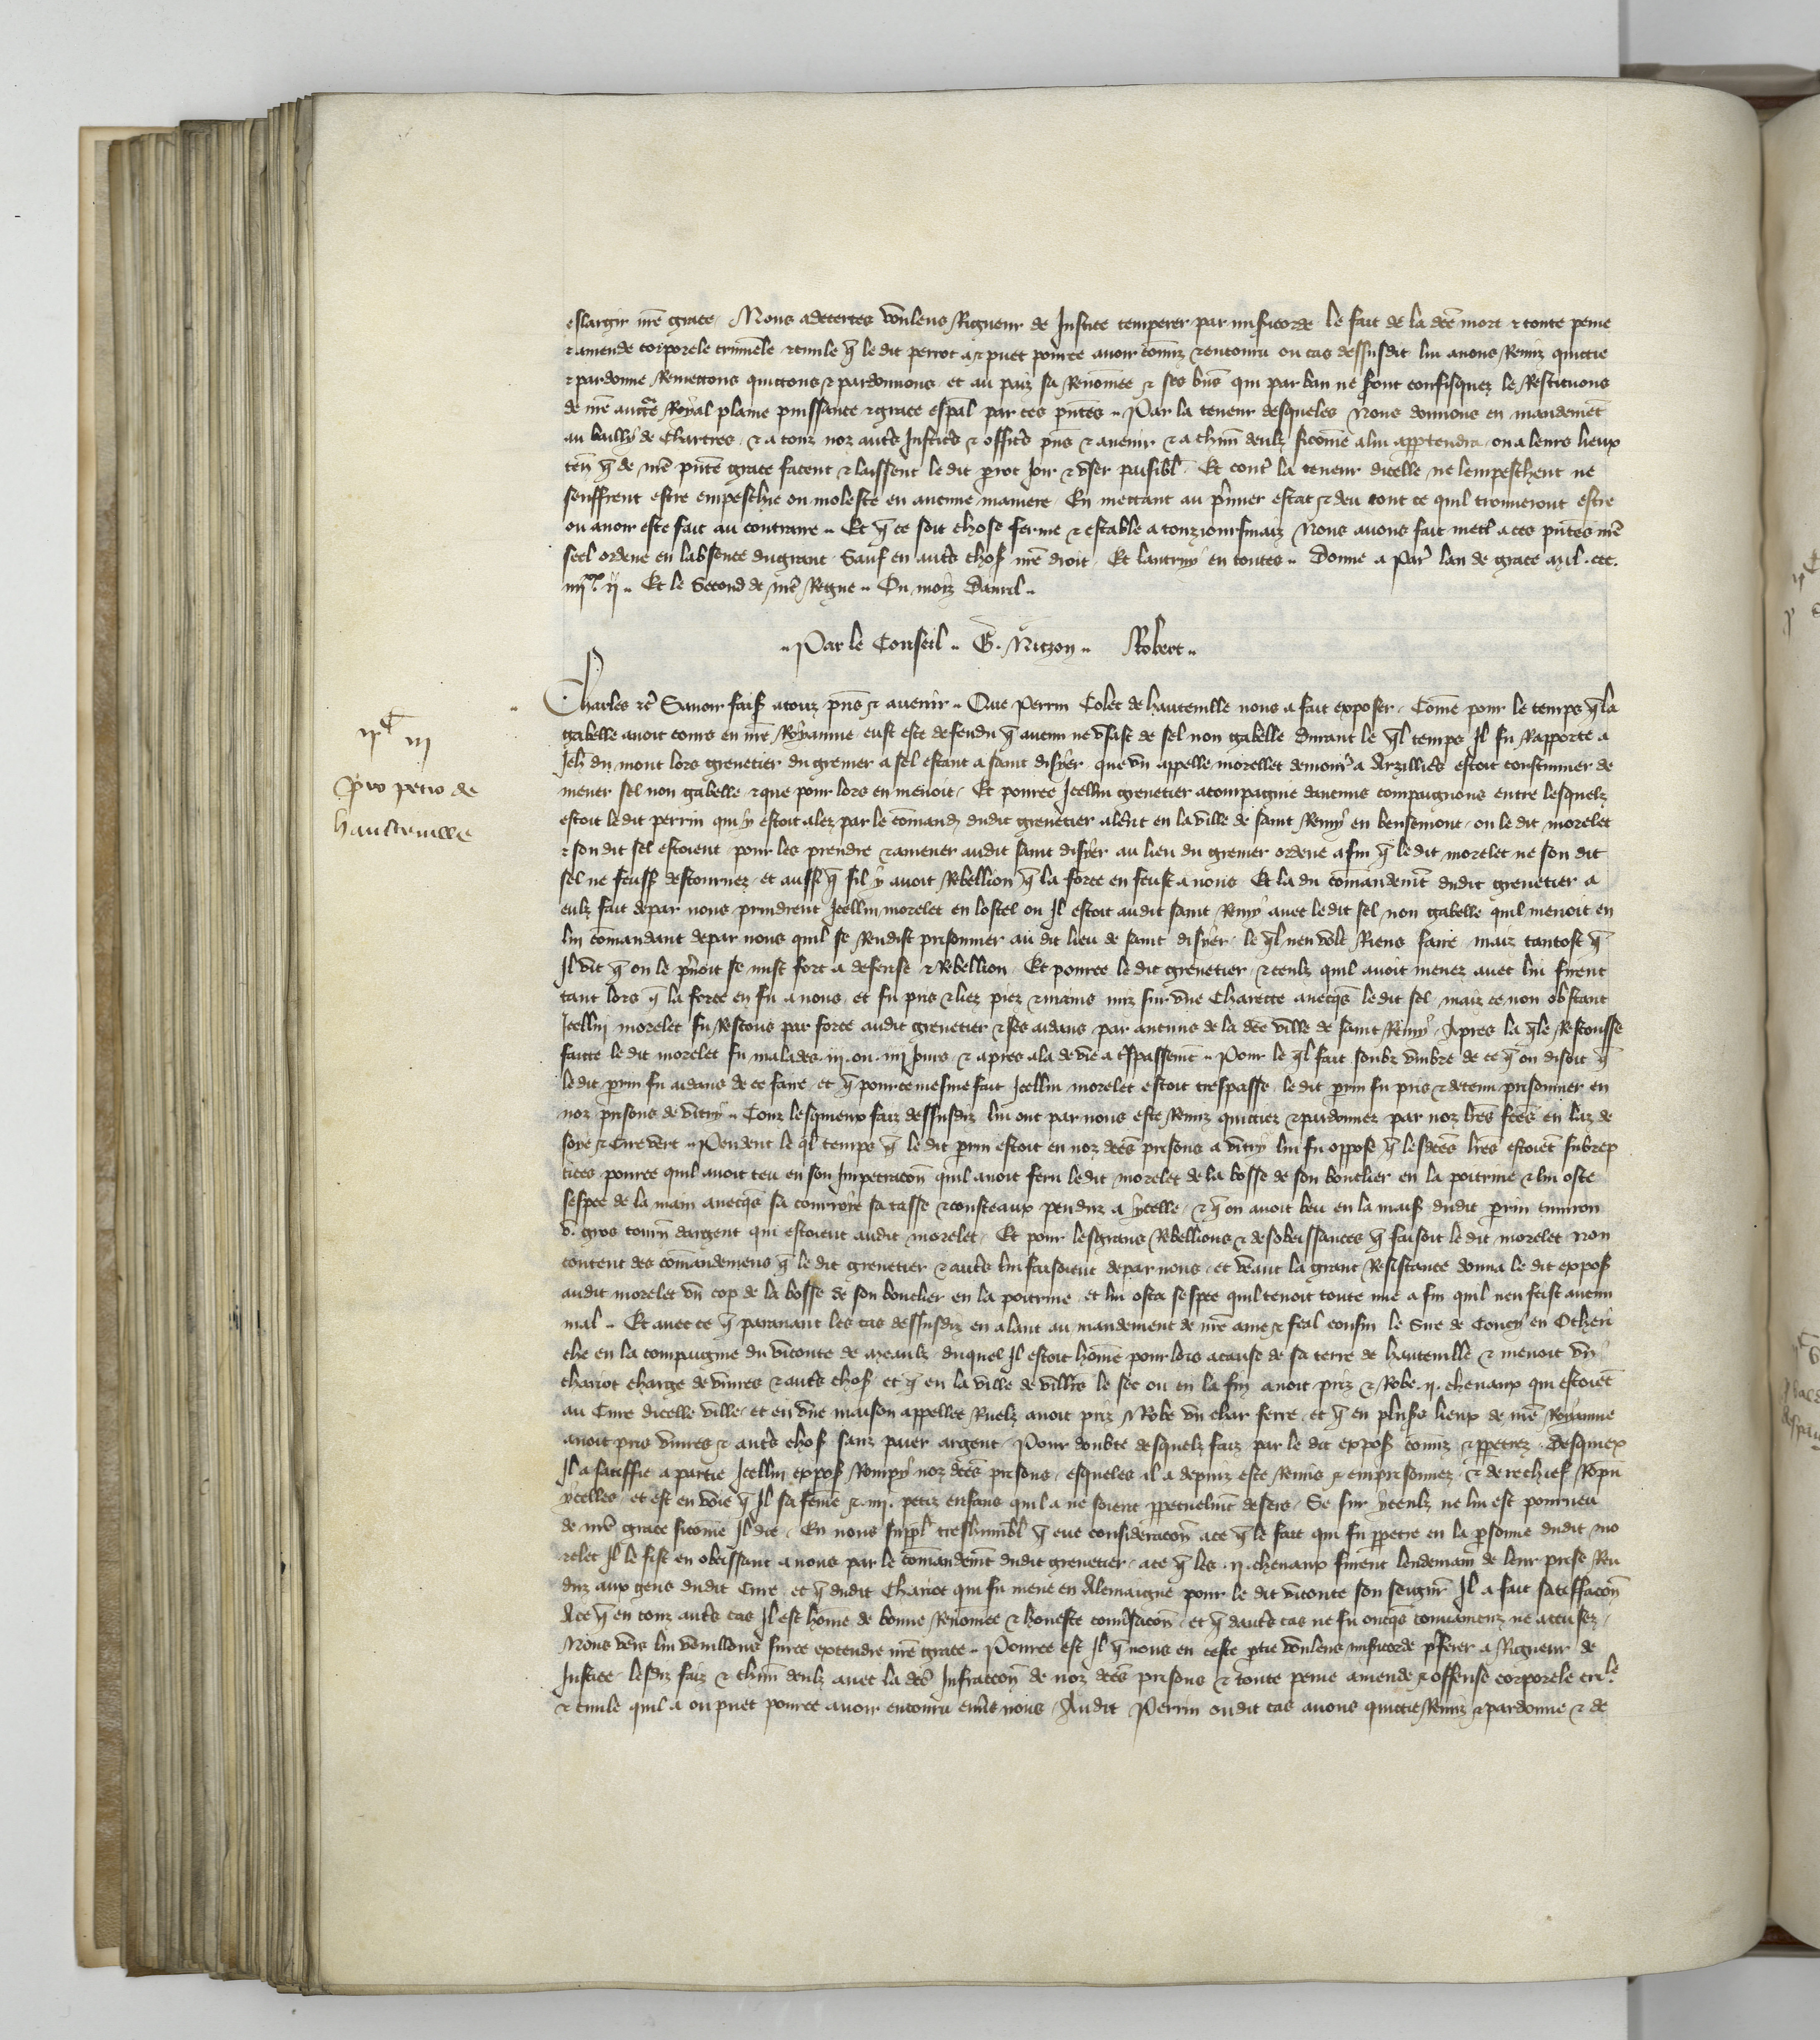 eslargir nr̃e grace. Nous adecertes voulens Rigueur de Justice temperer par misericorde le fait de la dc̃e mort et toute peine
et amende corporele criminele et civile q̃ le dit perrot a et puet pource avoir cõmis et encouru ou cas dessusdit lui avons Remiz quictie
et pardonne Remettons quictons et pardonnons et au paiz sa Renom̃ee et ses bñs qui par ban ne sont confisquez le Restituons
de nr̃e auct̃e Royal plaine puissance et grace esp̃al par ces pñtes Par la teneur desqueles Nous donnons en mandemẽt
au bailly de Chartres et a touz noz aut̃s Justic̃s et offic̃s pñs et avenir et a chũn deulz sicom̃e a lui appartendra ou a leurs lieux
teñ q̃ de nr̃e pñte grace facent et laissent le dit p̃rot Joir et user paisibl̃ Et cont̃ la teneur dicelle ne lempeschent ne
seuffrent estre empeschie ou moleste en aucune maniere En mettant au p̃mier estat et deu tout ce quil trouveront estre
ou avoir este fait au contraire Et q̃ ce soit chose ferme et estable a touzjoursmaiz Nous avons fait mettr̃ a ces pñtes nr̃e
seel ordene en labsence du grant Sauf en aut̃s choses nr̃e droit Et lautruy en toutes Donne a Par̃ lan de grace mil .ccc.
iiijxx ij Et le Second de nr̃e Regne Ou moiz Davril
Par le Conseil G. Nitzon Robert
Charles etc̃ Savoir fais̃ a touz pñs et avenir Que Perrin Colet de hauteville nous a fait exposer Com̃e pour le temps q̃ la
gabelle avoit cours en nr̃e Royaume eust este defendu q̃ aucun ne usast de sel non gabelle Durant le q̃l temps Il fu Rapporte a
Jeh̃ du mont lors grenetier du grenier a sel estant a saint disier que un appelle morellet demour̃ a Arzillier̃s estoit coustumier de
mener sel non gabelle et que pour lors en menoit Et pource Icellui grenetier acompaignie daucuns compaignons entre lesquelz
estoit le dit perrin qui y estoit alez par le com̃and̃ dudit grenetier aler̃nt en la ville de saint Remy en bensemont ou le dit morelet
et son dit sel estoient pour les prendre et amener audit saint disier au lieu du grenier ordene a fin q̃ le dit morelet ne son dit
sel ne feuss̃ destournez et aussi q̃ sil y avoit Rebellion q̃ la force en feust a nous Et la du com̃andemẽt dudit grenetier a
eulz fait depar nous prindrent Icellui morelet en lostel ou Il estoit audit saint Remy avec le dit sel non gabelle quil menoit en
lui com̃andant depar nous quil se Rendist prisonnier au dit lieu de saint disier le q̃l nen volt Riens faire maiz tantost q̃
Il vit q̃ on le p̃noit se mist fort a defense et Rebellion Et pource le dit grenetier et ceulz quil avoit menez avec lui firent
tant lors q̃ la force en fu a nous et fu pris et liez piez et mains miz sur une Charette avecq̃s le dit sel maiz ce non obstant
Icellui morelet fu Rescous par force audit grenetier et ses aidans par aucuns de la dc̃e ville de saint Remy Apres la q̃le Rescousse
faitte le dit morelet fu malades .iij. ou .iiij jours et apres ala de vie a t̃spassemẽt Pour le q̃l fait soubz umbre de ce q̃ on disoit q̃
le dit p̃rin fu aidans de ce faire et q̃ pource mesme fait Icellui morelet estoit trespasse le dit p̃rin fu pris et detenu prisonnier en
noz prisons de vitry Touz lesquieux faiz dessusdiz lui ont par nous este Remiz quictiez et pardonnez par noz lr̃es fc̃es en laz de
soye et Cire vert Pendent le q̃l temps q̃ le dit p̃rin estoit en noz dc̃es prisons a vitry lui fu oppose q̃ lesdc̃es lr̃es estoiẽt subrep
tices pource quil avoit teu en son Impetracoñ quil avoit feru le dit morelet de la bosse de son bouclier en la poitrine et lui oste
sespee de la main avecq̃s sa courroie sa tasse et cousteaux penduz a ycelle et q̃ on avoit beu en la mais̃ dudit p̃rin environ
v. gros tourñ dargent qui estoient audit morelet Et pour les grans Rebellions et desobeissances q̃ faisoit le dit morelet non
content des com̃andemens q̃ le dit grenetier et aut̃s lui faisoient depar nous et veant la grant Resistance donna le dit expos̃
audit morelet un cop de la bosse de son bouclier en la poitrine et lui osta sespee quil tenoit toute nue a fin quil nen feist aucun
mal Et avec ce q̃ paravant les cas dessusdiz en alant au mandement de nr̃e ame et feal cousin le Sire de Coucy en Otheri
che en la compaignie du viconte de meaulz duquel Il estoit hom̃e pour lors a cause de sa terre de hauteville et menoit un
chariot charge de vivres et aut̃s chos̃ et q̃ en la ville de villers le sec ou en la fin avoit priz et Robe .ij. chevaux qui estoiẽt
au Cure dicelle ville et en une maison appellee Ruelz avoit priz et Robe un char ferre et q̃ en plus̃s lieux de nr̃e Royaume
avoit pris vivres et aut̃s chos̃ sanz paier argent Pour doubte desquelz faiz par le dit expos̃ com̃iz et ppetrez Desquiex
Il a satiffie a partie Icellui expos̃ Rompy noz dc̃es prisons esqueles il a depuiz este Remis et emprisonnez et de rechief Rõpu
ycelles et est en voie q̃ Il sa feme et .iiij. petiz enfans quil a ne soient ppetuelmẽt desers Se sur yceulz ne lui est pourveu
de nr̃e grace sicom̃e Il dit En nous suppl̃ treshumbl̃ q̃ eue consideracoñ a ce q̃ le fait qui fu ppetre en la p̃sonne dudit mo
relet Il le fist en obeissant a nous par le com̃andemẽt dudit grenetier a ce q̃ les .ij. chevaux furent lendemain de leur prise Ren
duz aux gens dudit Cure et q̃ dudit Chariot qui fu mene en Alemaigne pour le dit viconte son seigñr Il a fait satiffacoñ
A ce q̃ en touz aut̃s cas Il est hom̃e de bonne Renom̃ee et honeste convsacoñ et q̃ daut̃s cas ne fu oncq̃s convaincuz ne accusez
Nous vers lui veuillons sur ce extendre nr̃e grace Pource est Il q̃ nous en ceste p̃tie voulens misericorde pferer a Rigueur de
Justice lesdiz faiz et chũn deulz avec la dc̃e Infraccoñ de noz dc̃es prisons et toute peine amende et offense corporele cri.le
et civile quil a ou puet pource avoir encouru enṽs nous Audit Perrin ou dit cas avons quictie Remiz et pardonne et de
ijC iij
Pro petro de
haulteville